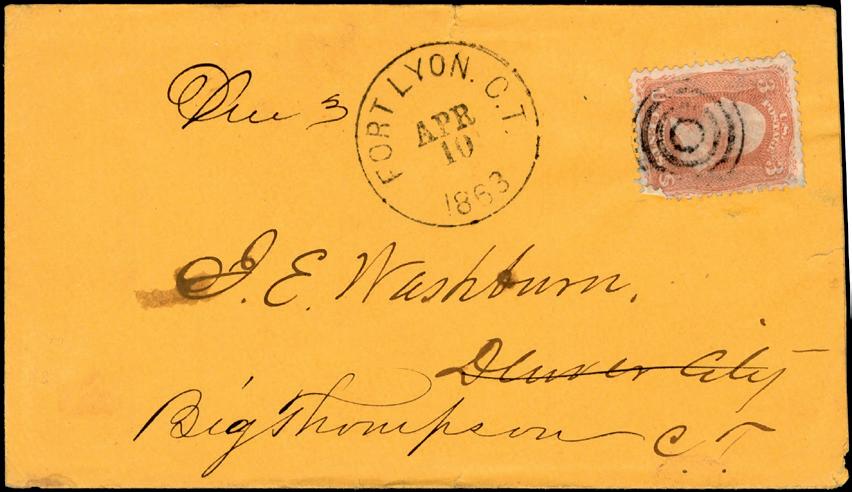 Due 3
FORT LYON. C.T.
APR
10
1863
3 U.S. POSTAGE 3
J. E. Washburn.
Denver City
Big Thompson C.T.